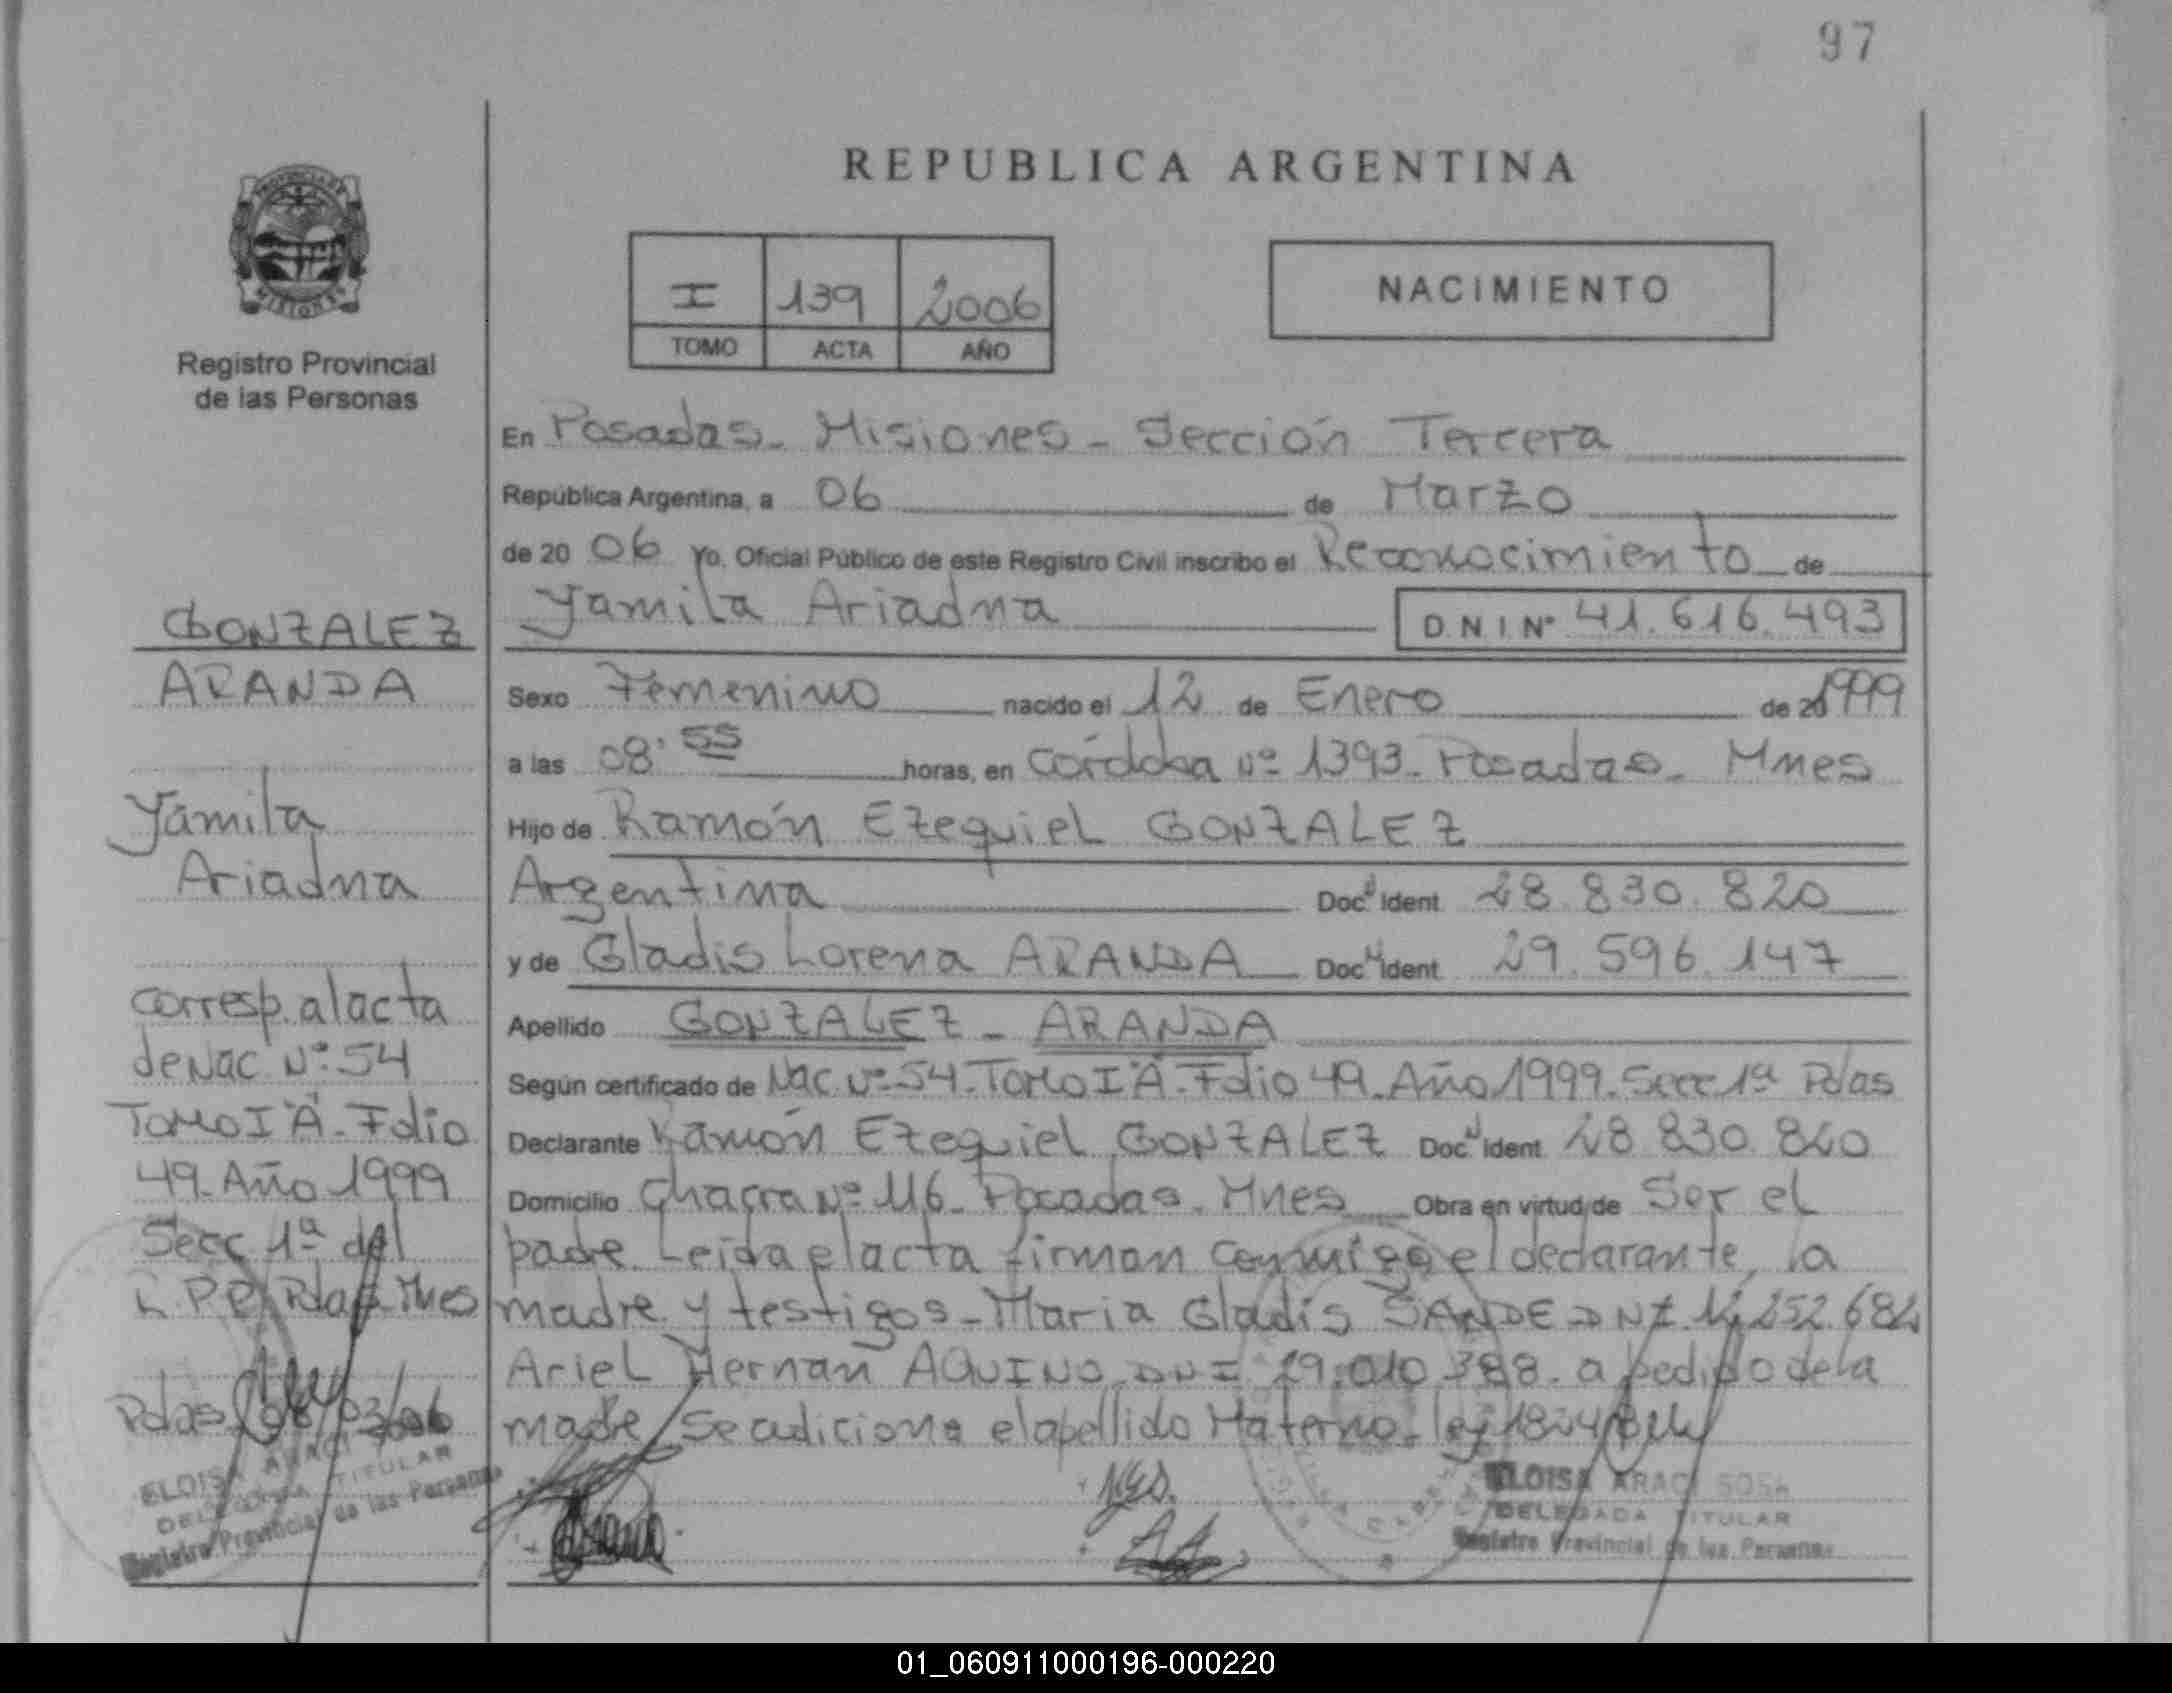 97
REPUBLICA ARGENTINA
PROVINCIA DE
MISIONES
Registro Provincial
de las Personas
I 139 2006
TOMO ACTA AÑO
NACIMIENTO
En Posadas - Misiones - Sección Tercera
República Argentina, a 06 de Marzo
de 20 06 Yo, Oficial Público de este Registro Civil inscribo el Reconocimiento de
Yamila Ariadna D.N.I. Nº 41.616.493
Sexo Femenino nacido el 12 de Enero de 20 1999
a las 08:55 horas, en Córdoba nº 1393 - Posadas - Mnes
Hijo de Ramón Ezequiel GONZALEZ
Argentina Doc. Ident 28.830.820
y de Gladis Lorena ARANDA Doc. Ident 29.596.147
Apellido GONZALEZ - ARANDA
Según certificado de Nac. nº 54 - Tomo I "A" - Folio 49 - Año 1999 - Secc 1ª Pdas
Declarante Ramón Ezequiel GONZALEZ Doc. Ident 28 830 820
Domicilio Chacra Nº 116 - Posadas - Mnes Obra en virtud de Ser el
padre. Leída el acta firman conmigo el declarante, la
madre y testigos - Maria Gladis SANDE DNI
Ariel Hernan AQUINO DNI 29.010.388 - a pedido de la
madre se adiciona el apellido Materno - ley
ELOISA ARACI SOSA
DELEGADA TITULAR
Registro Provincial de las Personas
GONZALEZ
ARANDA
Yamila
Ariadna
Corresp. al acta
de Nac. nº 54
Tomo I "A" - Folio
49 - Año 1999
Secc 1ª del
R.P.P. Pdas - Mnes
Pdas 06/03/06
ELOISA ARACI SOSA
DELEGADA TITULAR
Registro Provincial de las Personas
01_060911000196-000220